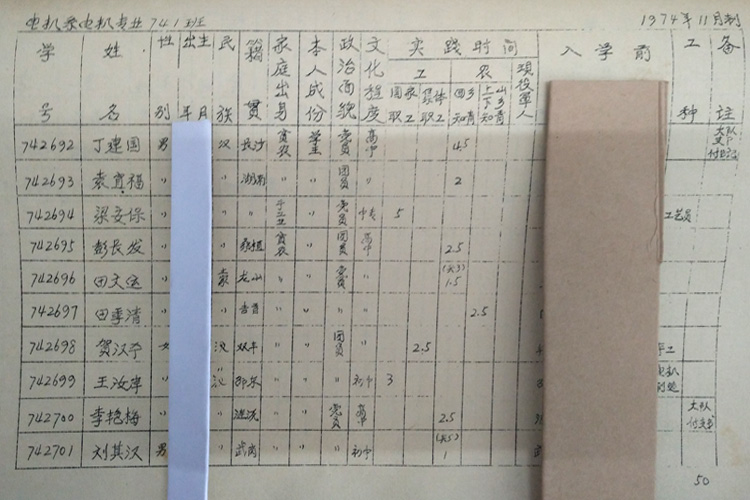 电机系电机专业741班 1974年11月制
学号 姓名 性别 出生年月 民族 籍贯 家庭出身 本人成份 政治面貌 文化程度 实践时间 工 国家职工 集体职工 农 回乡知青 上山下乡知青 现役军人 入学前 工种 备注
742692 丁建国 男 汉 长沙 贫农 学生 党员 高中 4.5 大队支部付书记
742693 袁宜福 〃 〃 〃 〃 团员 〃 2
742694 梁安保 〃 〃 〃 〃 党员 中专 5 工艺员
742695 彭长发 〃 〃 桑植 贫农 〃 团员 高中 2.5
742696 田文运 〃 龙山 〃 〃 党员 〃 1.5
742697 田季清 〃 〃 〃 〃 〃 〃 2.5
742698 贺汉 女 汉 双丰 〃 〃 团员 〃 2.5
742699 王汝 〃 汉 邵东 〃 〃 〃 初中 3
742700 李艳梅 〃 〃 涟沅 〃 〃 党员 高中 2.5 大队付支书
742701 刘其汉 男 〃 武岗 〃 〃 〃 初中 1
50